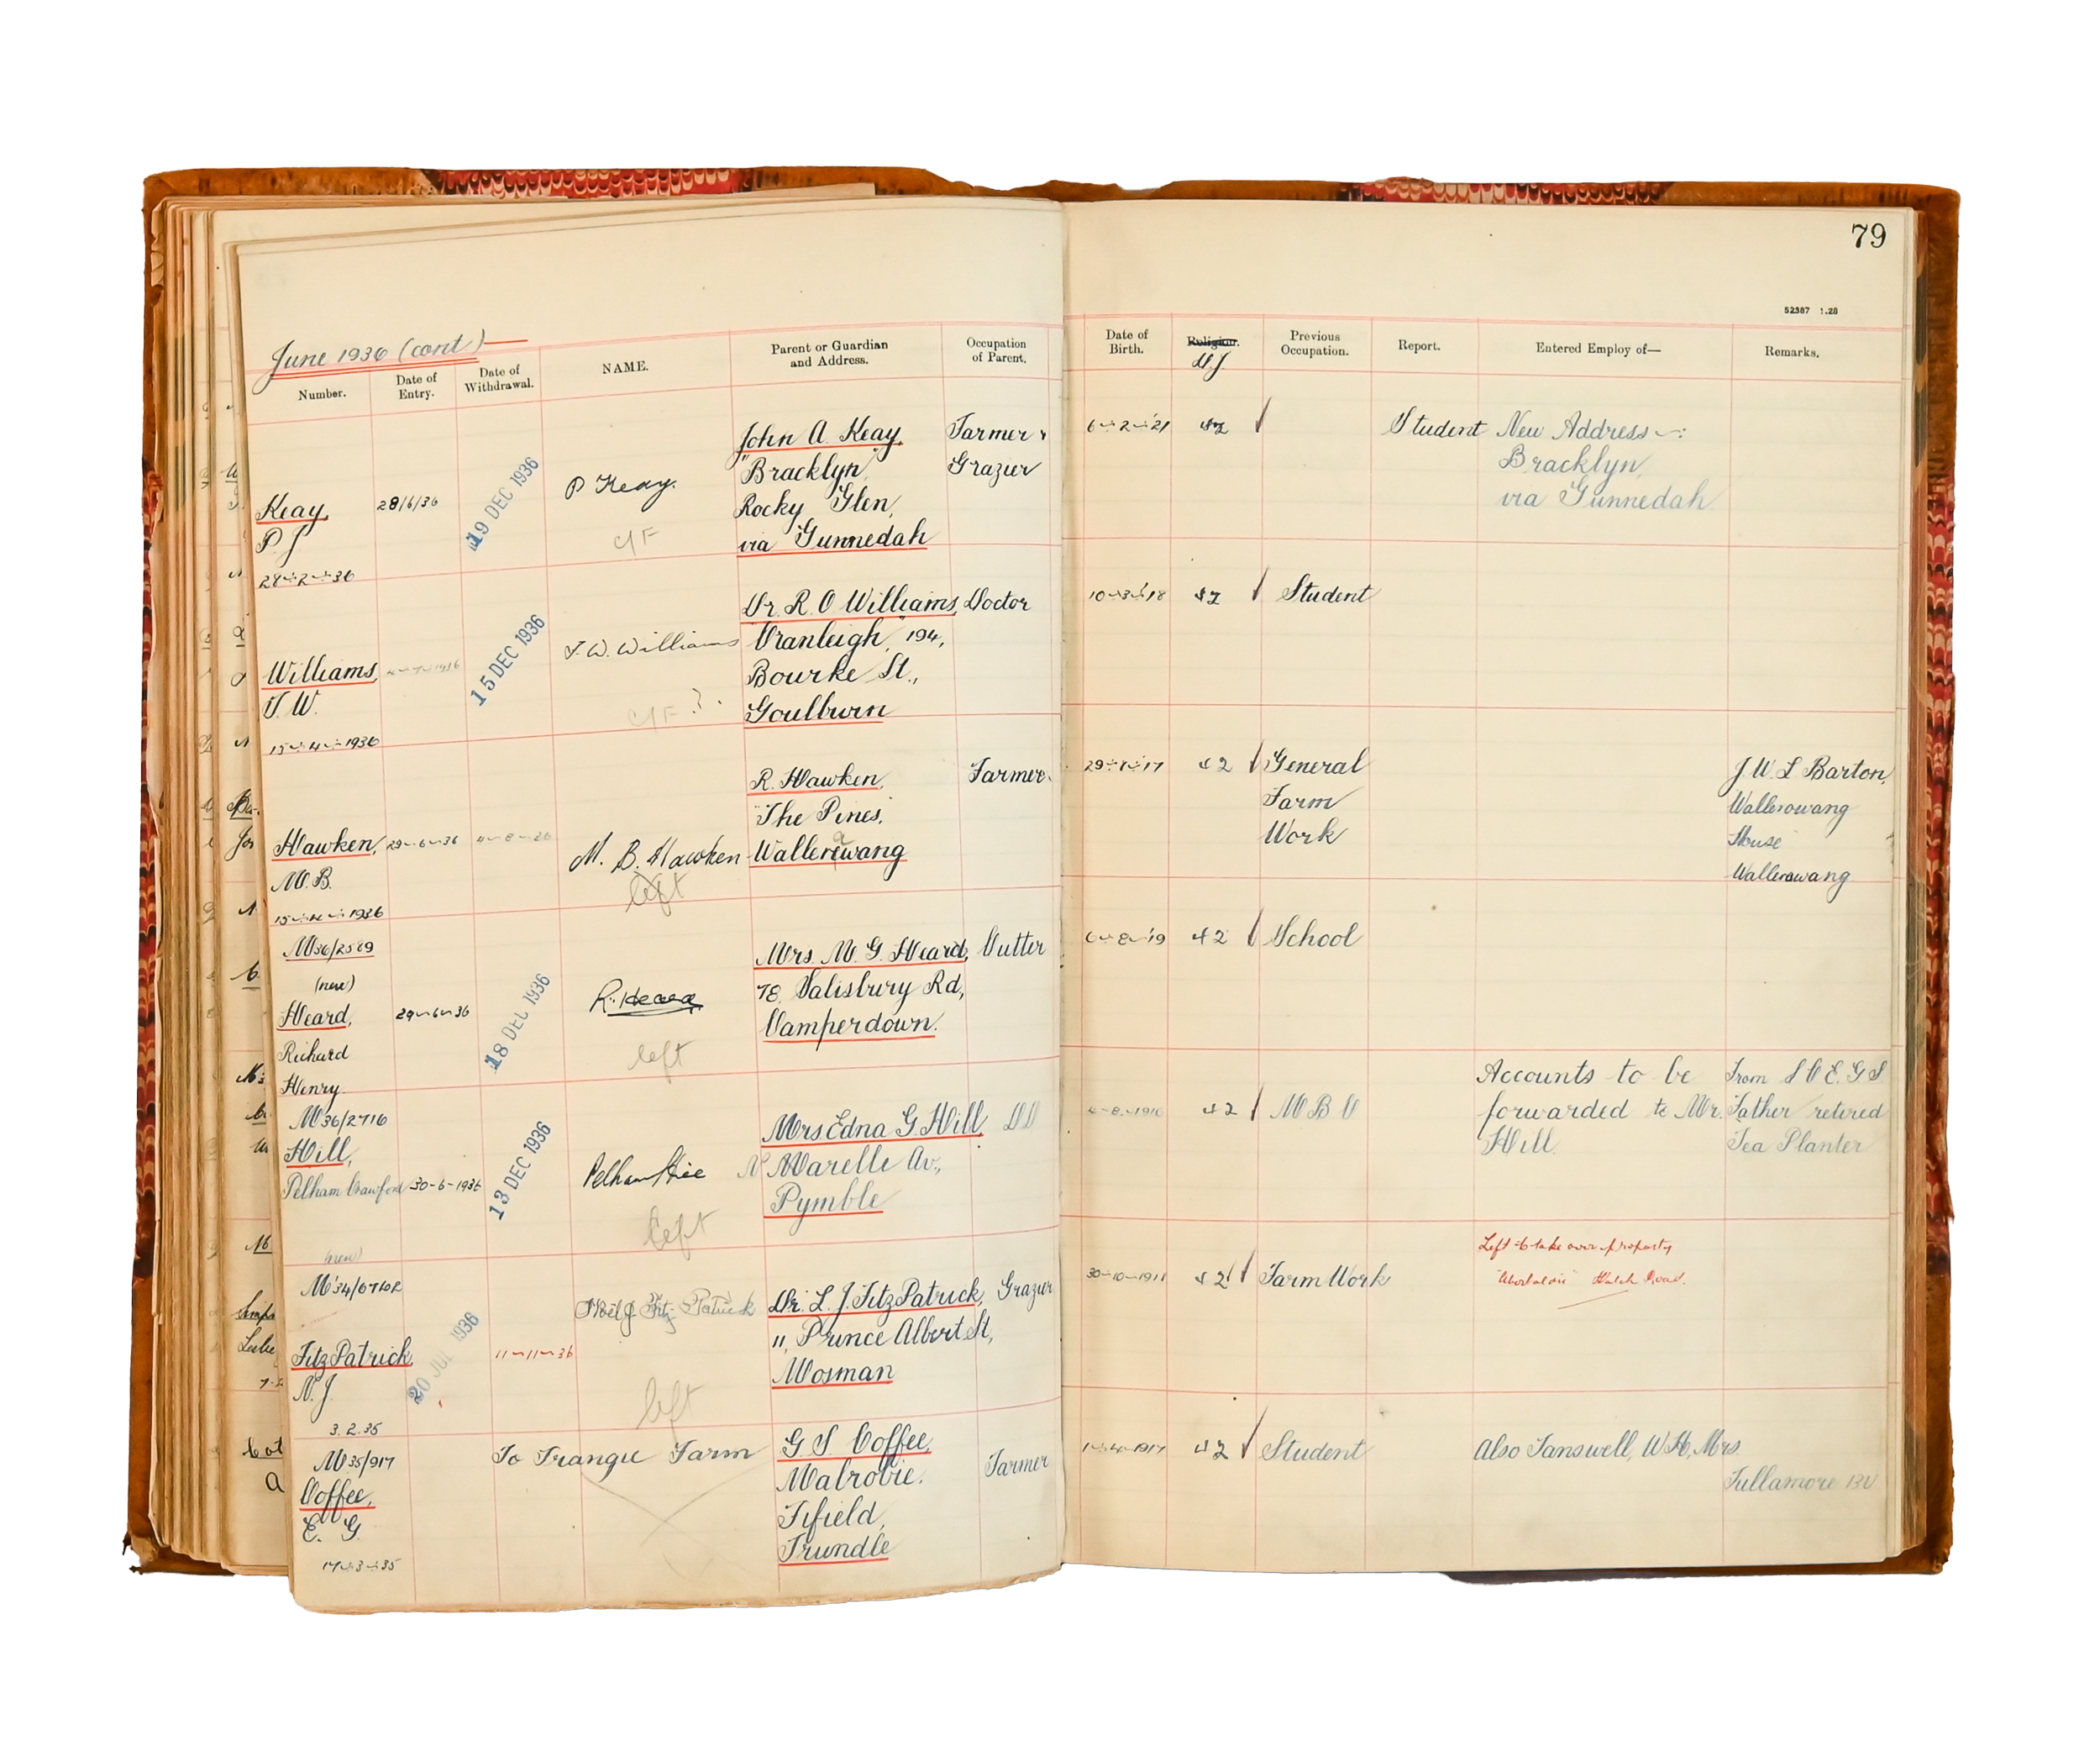 79
52387 1.28
June 1936 (cont)
Number.
Date of Entry.
Date of Withdrawal.
NAME.
Parent or Guardian and Address.
Occupation of Parent.
Date of Birth.
Religion.
Previous Occupation.
Report.
Entered Employ of—
Remarks.
Keay,
P. J
28/6/36
19 DEC 1936
P Keay.
C/F
John A. Keay,
"Bracklyn"
Rocky Glen,
via Gunnedah
Farmer &
Grazier
6-2-'21
Student
New Address -:
Bracklyn,
via Gunnedah
-2-36
Williams,
T. W.
15 DEC 1936
T. W. Williams
C/F ?
Dr. R. O Williams,
"Cranleigh", 194,
Bourke St.,
Goulburn
Doctor
10-3-'18
Student
15-4-1936
Hawken,
M. B.
29-6-36
M. B. Hawken
left
R. Hawken,
"The Pines,
Wallerawang
Farmer
29- -'17
42
General
Farm
Work
J. W. L Barton,
Wallerawang
House
Wallerawang
15-4-1936
M36/2569
(new)
Heard,
Richard
Henry.
29-6-36
18 DEC 1936
R. Heard
left
Mrs. M. G. Heard,
78, Salisbury Rd,
Camperdown.
Cutter
6-8-'19
42
School
M36/2716
Hill,
Pelham Crawford
30-6-1936
13 DEC 1936
Pelham Hill
left
Mrs Edna G. Hill,
Marelle Av.,
Pymble
DD
-8-1916
42
M B C
Accounts to be
forwarded to Mr.
Hill
From S C E. G S.
Father retired
Tea Planter
(new)
M34/67
FitzPatrick,
N. J.
20 JUL 1936
11-11-36
Noel J Fitz-Patrick
left
Dr. L. J. FitzPatrick,
11, Prince Albert St,
Mosman
Grazier
30-10-1911
42
Farm Work
Left to take over property
3.2.35
M35/917
Coffee,
E. G.
17-3-35
To Trangie Farm
G S Coffee,
Malrobie.
Fifield,
Trundle
Farmer
1-4-1917
42
Student
Also Tanswell, W H, Mrs.
Tullamore